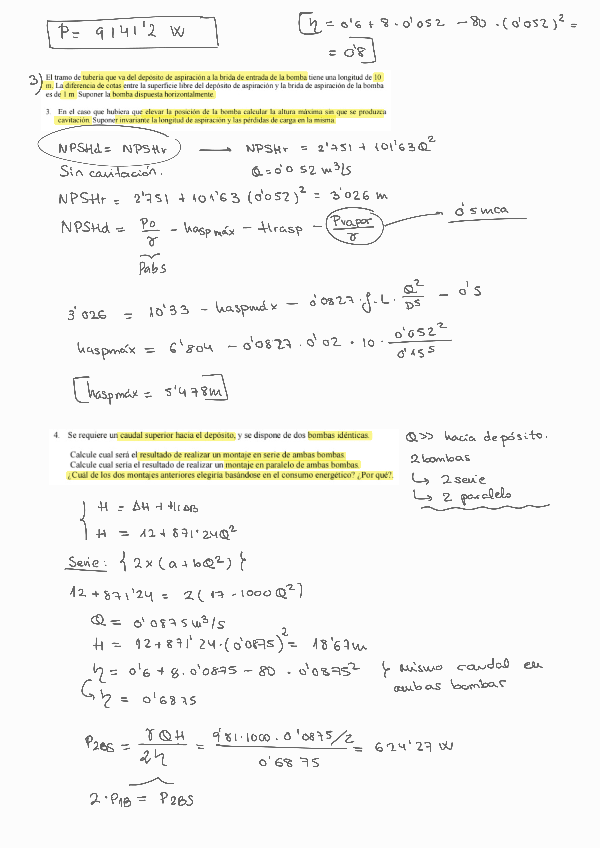 P = 9141'2 W
η = 0'6 + 8 · 0'052 - 80 · (0'052)² =
= 0'8
3) El tramo de tubería que va del depósito de aspiración a la brida de entrada de la bomba tiene una longitud de 10
m. La diferencia de cotas entre la superficie libre del depósito de aspiración y la brida de aspiración de la bomba
es de 1 m. Suponer la bomba dispuesta horizontalmente.
3 En el caso que hubiera que elevar la posición de la bomba calcular la altura máxima sin que se produzca
cavitación. Suponer invariante la longitud de aspiración y las pérdidas de carga en la misma.
NPSHd = NPSHr → NPSHr = 2'751 + 101'63Q²
Sin cavitación. Q = 0'052 m³/s
NPSHr = 2'751 + 101'63 (0'052)² = 3'026 m
NPSHd = Po/γ - haspmáx - Hrasp - Pvapor/γ → 0'5 mca
Pabs
3'026 = 10'33 - haspmáx - 0'0827 · f · L · Q²/D5 - 0'5
haspmáx = 6'804 - 0'0827 · 0'02 · 10 · 0'052²/0'15⁵
haspmáx = 5'478m
4. Se requiere un caudal superior hacia el depósito, y se dispone de dos bombas idénticas.
Calcule cual será el resultado de realizar un montaje en serie de ambas bombas.
Calcule cual seria el resultado de realizar un montaje en paralelo de ambas bombas.
¿Cuál de los dos montajes anteriores elegiría basándose en el consumo energético? ¿Por qué?.
Q >> hacia depósito.
2 bombas
↳ 2 serie
↳ 2 paralelo
H = ΔH + HrAB
H = 12 + 871'24Q²
Serie: { 2 × (a + bQ²) }
12 + 871'24 = 2 (17 - 1000Q²)
Q = 0'0875 m³/s
H = 12 + 871'24 · (0'0875)² = 18'67m
η = 0'6 + 8 · 0'0875 - 80 · 0'0875² } mismo caudal en
ambas bombas
↳ η = 0'6875
P2BS = γQH/2η = 9'81 · 1000 · 0'0875/2 / 0'6875 = 624'27 W
2 · P1B = P2BS